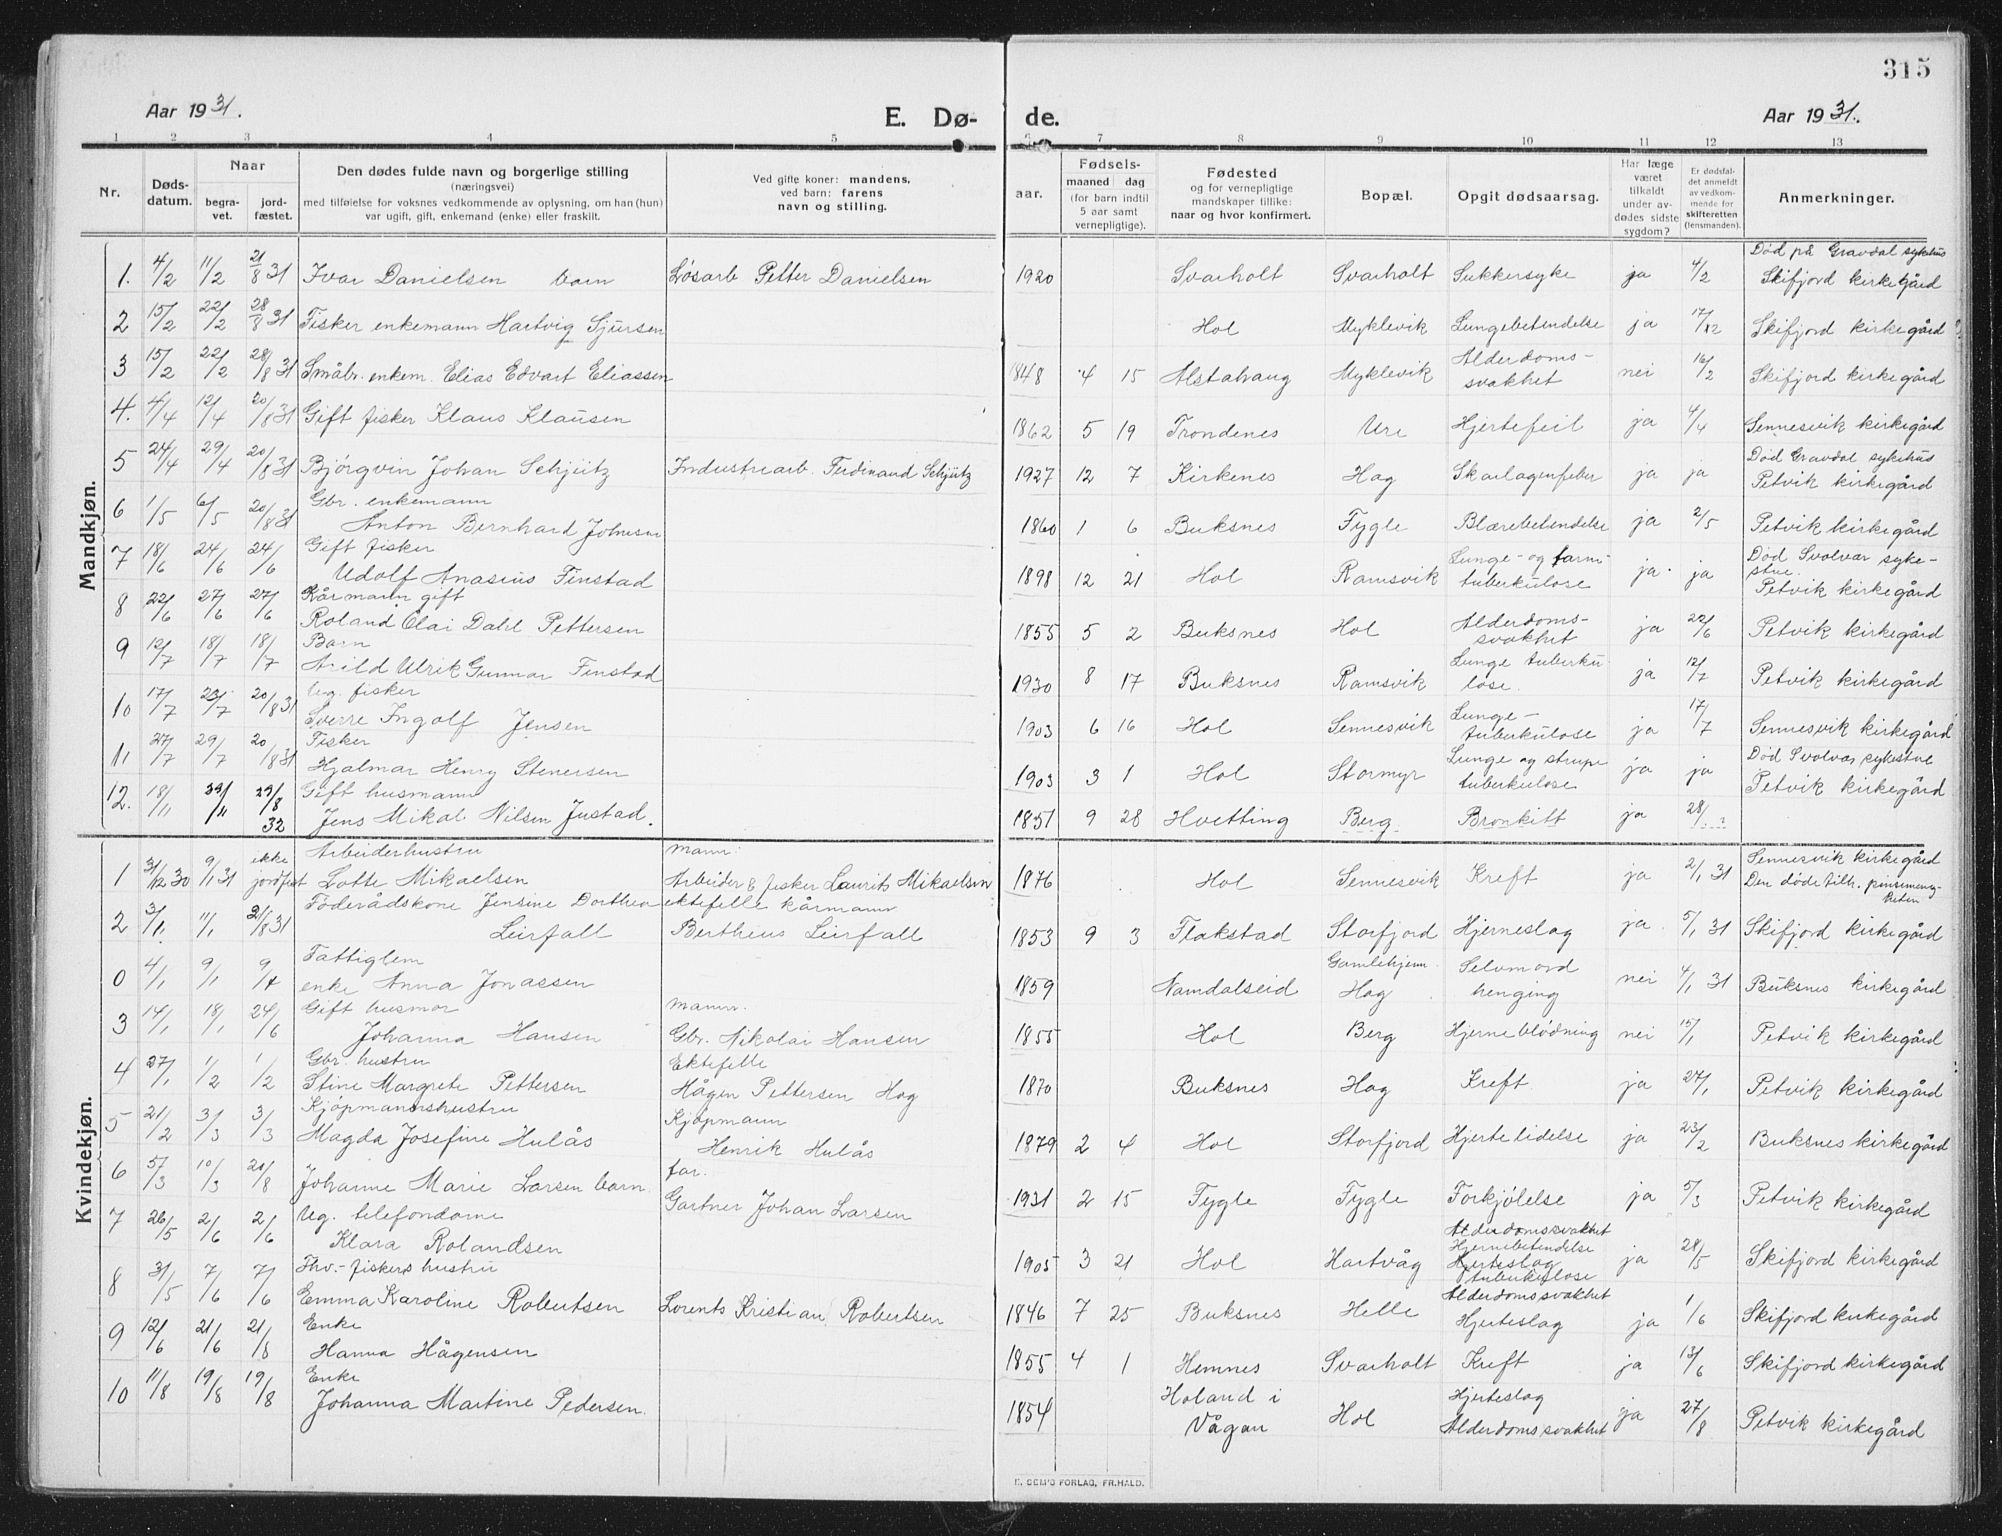 315
Aar 1931.
E. Dø-
de.
Aar 1931.
1 2 3 4 5 6 7 8 9 10 11 12 13
Nr.
Døds-
datum.
Naar
begra-
vet.
jord-
fæstet.
Den dødes fulde navn og borgerlige stilling
(næringsvei)
med tilføielse for voksnes vedkommende av oplysning, om han (hun)
var ugift, gift, enkemand (enke) eller fraskilt.
Ved gifte koner: mandens,
ved barn: farens
navn og stilling.
aar.
Fødsels-
maaned dag
(for barn indtil
5 aar samt
vernepligtige).
Fødested
og for vernepligtige
mandskaper tillike:
naar og hvor konfirmert.
Bopæl.
Opgit dødsaarsag.
Har læge
været
tilkaldt
under av-
dødes sidste
sygdom?
Er dødsfal-
det anmeldt
av vedkom-
mende for
skifteretten
(lensmanden).
Anmerkninger.
Mandkjøn.
Død på Gravdal sykehus
1. 4/2 11/2 21/8 31 Ivar Danielsen barn Løsarb Petter Danielsen 1920 Svarholt Svarholt Sukkersyke ja 4/2 Skifjord kirkegård
2 15/2 22/2 28/8 31 Fisker enkemann Hartvig Sjursen Hol Myklevik Lungebetendelse ja 17/12 Skifjord kirkegård
3 15/2 22/2 28/8 31 Småbr. enkem. Elias Edvart Eliassen 1848 4 15 Alstahaug Myklevik Alderdoms-
svakhet nei 16/2 Skifjord kirkegård
4. 4/4 12/4 20/8 31 Gift fisker Klaus Klausen 1862 5 19 Trondenes Ure Hjertefeil ja 4/4 Sennesvik kirkegård
Død Gravdal sykehus
5 24/4 29/4 20/8 31 Bjørgvin Johan Schjütz Industriearb. Ferdinand Schjütz 1927 12 7 Kirkenes Hag Skarlagenfeber ja ja Petvik kirkegård
Gbr. enkemann
6 1/5 6/5 20/8 31 Anton Bernhard Johnsen 1860 1 6 Buksnes Fygle Blærebetendelse ja 2/5 Petvik kirkegård
Gift fisker Lunge- og tarm- Død Svolvær syke-
stue.
7 18/6 24/6 24/6 Udolf Anasius Finstad 1898 12 21 Hol Ramsvik tuberkulose ja. ja Petvik kirkegård
Kårmann gift Alderdoms-
8 22/6 27/6 27/6 Roland Olai Dahl Pettersen 1855 5 2 Buksnes Hol svakhet ja 22/6 Petvik kirkegård
Barn Lunge tuberku-
9 12/7 18/7 18/7 Arild Ulrik Gunnar Finstad 1930 8 17 Buksnes Ramsvik lose. ja 12/7 Petvik kirkegård
Ug. fisker Lunge-
10 17/7 23/7 20/8 31 Sverre Ingolf Jensen 1903 6 16 Hol Sennesvik tuberkulose ja 17/7 Sennesvik kirkegård
Fisker Lunge og strupe Død Svolvær sykestue
11 27/7 29/7 20/8 31 Hjalmar Henry Stenersen 1903 3 1 Hol Stormyr tuberkulose ja ja Petvik kirkegård
Gift husmann
12. 18/11 /11 29/8 32 Jens Mikal Nilsen Justad. 1851 9 28 Hvetting Berg Bronkitt ja 28/
Kvindekjøn.
Arbeiderhustru Mann: Sennesvik kirkegård
1 31/12 30 9/1 31 ikke jordfest Lotte Mikaelsen Arbeider & fisker Laurits Mikaelsen 1876 Hol Sennesvik Kreft ja 2/1 31 Den døde tilh. pinsemenig-
heten
Føderådskone Jensine Dorthea ektefelle kårmann
2 3/1 11/1 21/8 31 Leirfall Berthius Leirfall 1853 9 3 Flakstad Storfjord Hjerneslag ja 5/1 31 Skifjord kirkegård
Fattiglem Gamlehjem Selvmord
0 4/1 9/1 9/4 enke Anna Jonassen 1859 Namdalseid Hag henging nei 4/1 31 Buksnes kirkegård
Gift husmor Mann.
3 14/1 18/1 24/6 Johanna Hansen Gbr. Nikolai Hansen 1855 Hol Berg Hjerneblødning nei 15/1 Petvik kirkegård
Gbr. hustru Ektefelle
4 27/1 1/2 1/2 Stine Margrete Pettersen Hågen Pettersen Hog 1870 Buksnes Hag Kreft ja 27/1 Petvik kirkegård
Kjøpmannshustru Kjøpmann
5 21/2 3/3 3/3 Magda Josefine Hulås Henrik Hulås 1879 2 4 Hol Storfjord Hjertelidelse ja 23/2 Buksnes kirkegård
far.
6 5/3 10/3 20/8 Johanne Marie Larsen barn Gartner Johan Larsen 1931 2 15 Fygle Fygle Forkjølelse ja 5/3 Petvik kirkegård
Ug. telefondame Alderdomssvakhet
Hjernebetendelse
7 26/5 2/6 2/6 Klara Rolandsen 1905 3 21 Hol Hartvåg Hjerteslag
tuberkulose ja 28/5 Skifjord kirkegård
Fhv.- fiskers hustru Alderdomssvakhet
8 31/5 7/6 7/6 Emma Karoline Robertsen Lorents Kristian Robertsen 1846 7 25 Buksnes Helle Hjerteslag ja 1/6 Skifjord kirkegård
Enke
9 12/6 21/6 21/8 Hanna Hågensen 1855 4 1 Hemnes Svarholt Kreft ja 13/6 Skifjord kirkegård
Enke Holand i Hjerteslag
10 11/8 19/8 19/8 Johanna Martine Pedersen. 1854 Vågan Hol Alderdomssvakhet ja 27/8 Petvik kirkegård
FORLAG, FR.HALD.